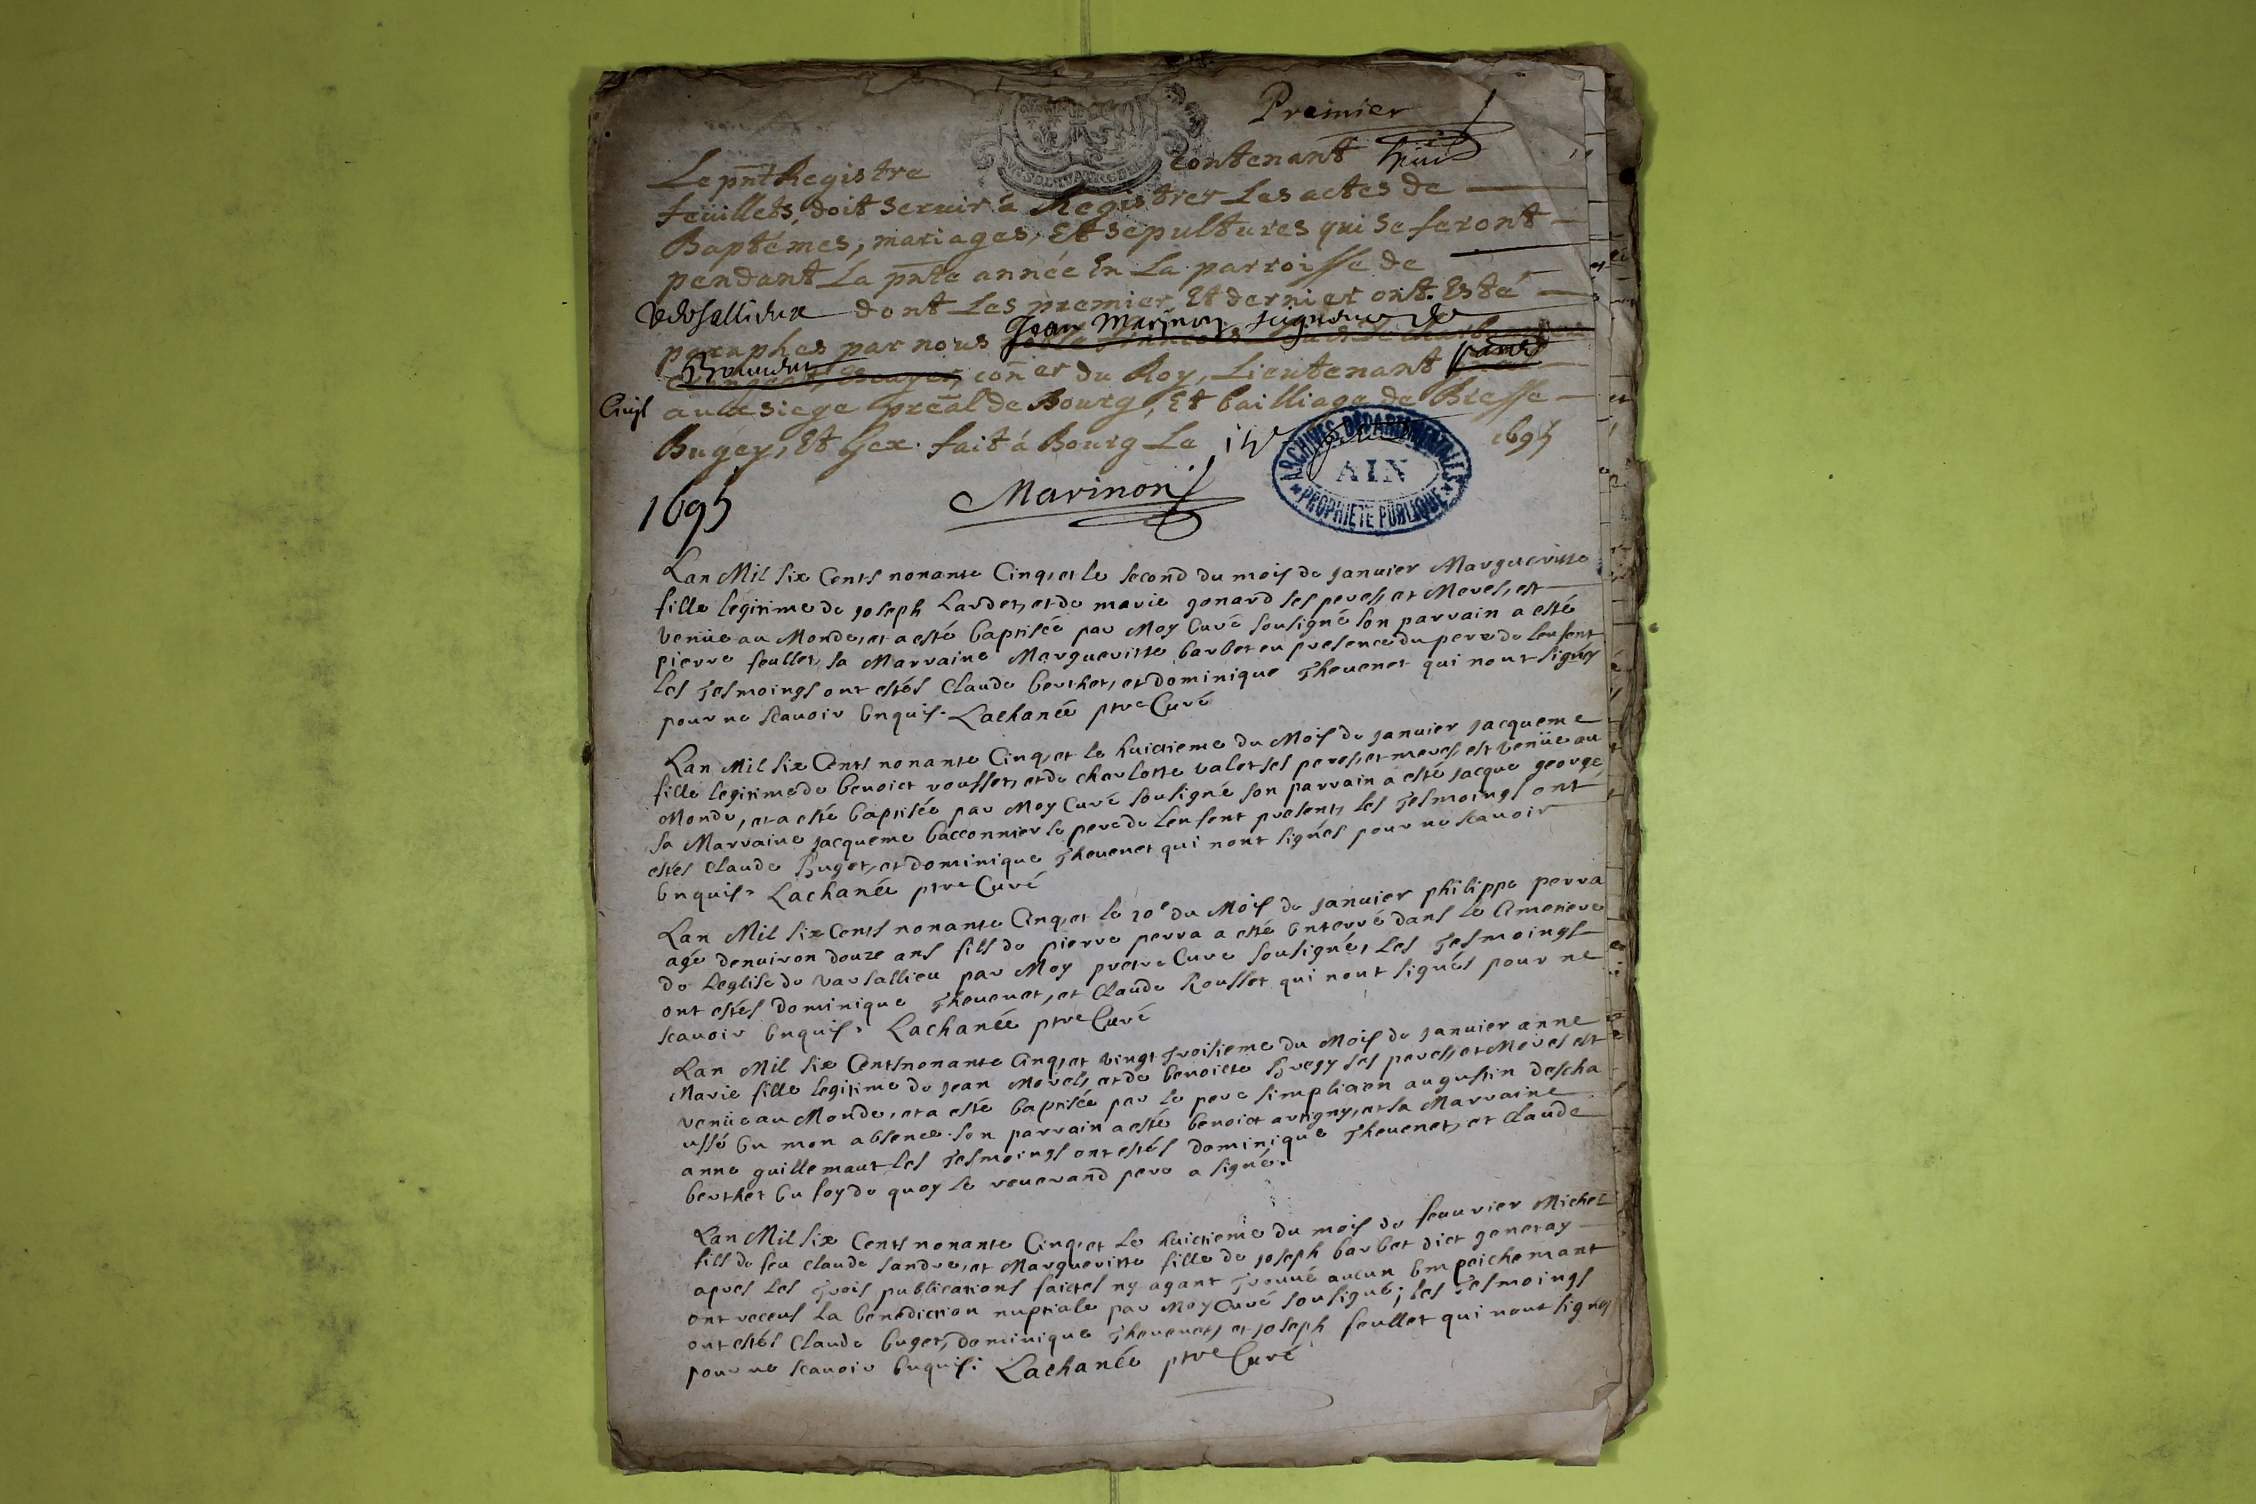 Premier
Le pnt Registre contenant huict
feüillets, doit seruir à Registrer Les actes de
Baptémes, mariages, Et sepultures qui se feront
pendant La pnte année En La parroisse de
dont Les premier, Et dernier ont Esté
Jean Marinon seigneur de
paraphes par nous
con er du Roy, Lieutenant
Ciuil au siege preal de Bourg, Et bailliage de Bresse
Bugey, Et Gex. fait à Bourg Le 1695
1695 Marinon
ARCHIVES DÉPARTEMENTALES
AIN
PROPRIÉTÉ PUBLIQUE
Lan Mil six Cents nonante Cinq, et le second du mois de januier Margueritte
fille legitime de joseph Lardet, et de marie gonard ses peres, et Meres, est
venüe au Monde, et a esté baptisée par Moy Curé sousigné son parrain a esté
pierre feullet, sa Marraine Margueritte barbet en presence du pere de lenfent
les Tesmoings ont estés Claude berthet, et dominique Theuenet qui nont signés
pour ne scauoir Enquis. Lachanée ptre Curé
Lan Mil six Cents nonante Cinq, et le huictieme du Mois de januier jacqueme
fille legitime de benoict rousset, et de charlotte valet ses peres, et meres, est venüe au
Monde, et a esté baptisée par Moy Curé sousigné son parrain a esté jacque george
sa Marraine jacqueme bacconnier le pere de lenfent present, les Tesmoings ont
estés Claude Buget, et dominique Theuenet qui nont signés pour ne scauoir
Enquis. Lachanée ptre Curé
Lan Mil six Cents nonante Cinq, et le 20e du Mois de januier philippe perra
agé denuiron douze ans fils de pierre perra a esté Enterré dans le Cimetiere
de leglise de varsallieu par Moy pretre Curé sousigné, les Tesmoings
ont estés dominique Theuenet, et Claude Rousset qui nont signés pour ne
scauoir Enquis. Lachanée ptre Curé
Lan Mil six Cents nonante Cinq, et vingt troisieme du Mois de januier anne
Marie fille legitime de jean Morel, et de benoicte Bregy ses peres, et Meres est
venüe au Monde, et a esté baptisée par le pere simplicien augustin descha
ussé En mon absence son parrain a esté benoict artigny, et sa Marraine
anne guillemaut les Tesmoings ont estés dominique Theuenet, et Claude
berthet En foy de quoy le reuerand pere a signé.
Lan Mil six Cents nonante Cinq, et le huictieme du mois de feaurier Michel
fils de feu Claude Sandre, et Margueritte fille de joseph barbet dict generay
apres les trois publications faictes ny ayant trouué aucun Empeichemant
ont receus la benediction nuptiale par Moy Curé sousigné; les Tesmoings
ont estés Claude buget, dominique Theuenet, et joseph feullet qui nont signés
pour ne scauoir Enquis: Lachanée ptre Curé